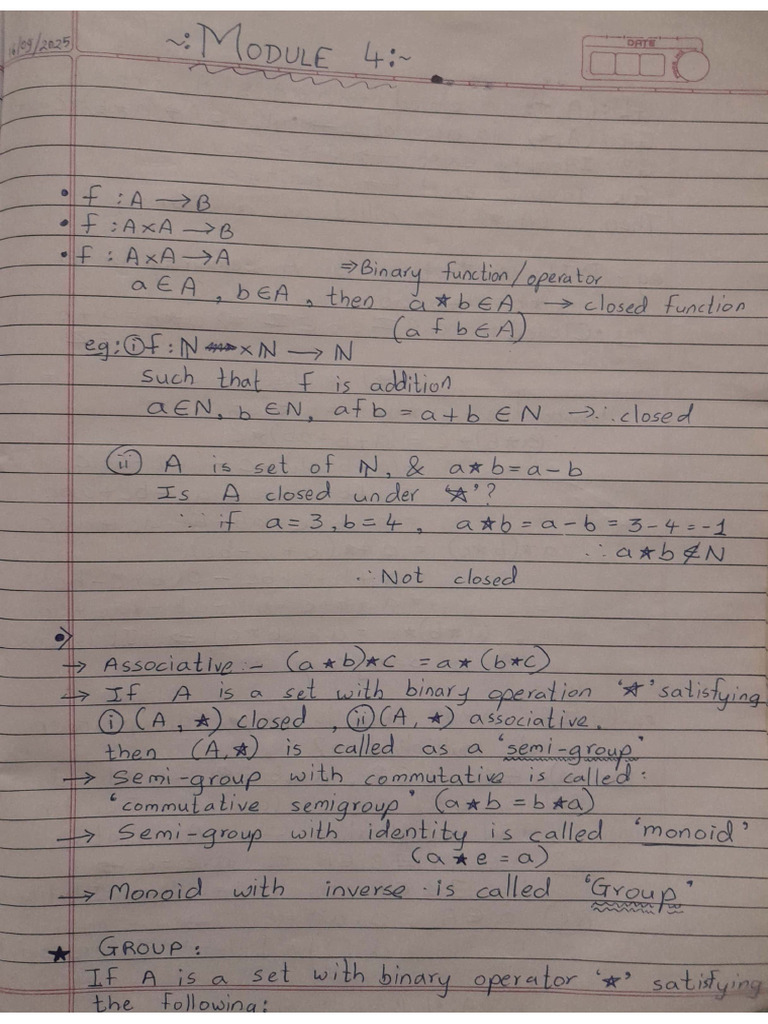 16/09/2025
~: MODULE 4:~
DATE
• f : A → B
• f : A×A → B
• f : A×A → A
⇒ Binary function/operator
a ∈ A , b ∈ A , then a ★ b ∈ A → closed function
(a f b ∈ A)
eg: ⓘ f : N × N → N
such that f is addition
a ∈ N, b ∈ N, a f b = a + b ∈ N → ∴ closed
ⓘⓘ A is set of N, & a ★ b = a - b
Is A closed under '★'?
∵ if a = 3, b = 4 , a ★ b = a - b = 3 - 4 = -1
∴ a ★ b ∉ N
∴ Not closed
•>
→ Associative :- (a ★ b) ★ c = a ★ (b ★ c)
→ If A is a set with binary operation '★' satisfying
ⓘ (A, ★) closed , ⓘⓘ (A, ★) associative.
then (A, ★) is called as a 'semi-group'
→ Semi-group with commutative is called :
'commutative semigroup' (a ★ b = b ★ a)
→ Semi-group with identity is called 'monoid'
(a ★ e = a)
→ Monoid with inverse is called 'Group'
★ GROUP :
If A is a set with binary operator '★' satisfying
the following :